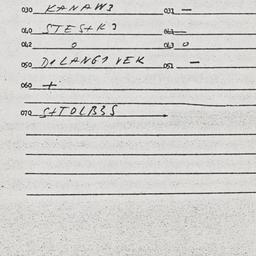 030 KANAW3 031 —
040 STES+K3 041 —
042 0 043 0
050 D+LANG? VEK 051 —
060 +
070 S+TOLB3S